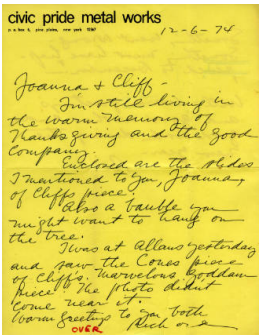 civic pride metal works
p. o. box 6, pine plains, new york 12567
12-6-74
Joanna & Cliff-
I'm still living in
the warm memory of
Thanksgiving and the good
company.
Enclosed are the slides
I mentioned to you, Joanna,
of Cliff's piece.
Also a bauble you
might want to hang on
the tree.
I was at Allan's yesterday
and saw the Cones piece
of Cliff's. Marvelous Goddam
piece! The photo didn't
come near it.
Warm greetings to you both
OVER